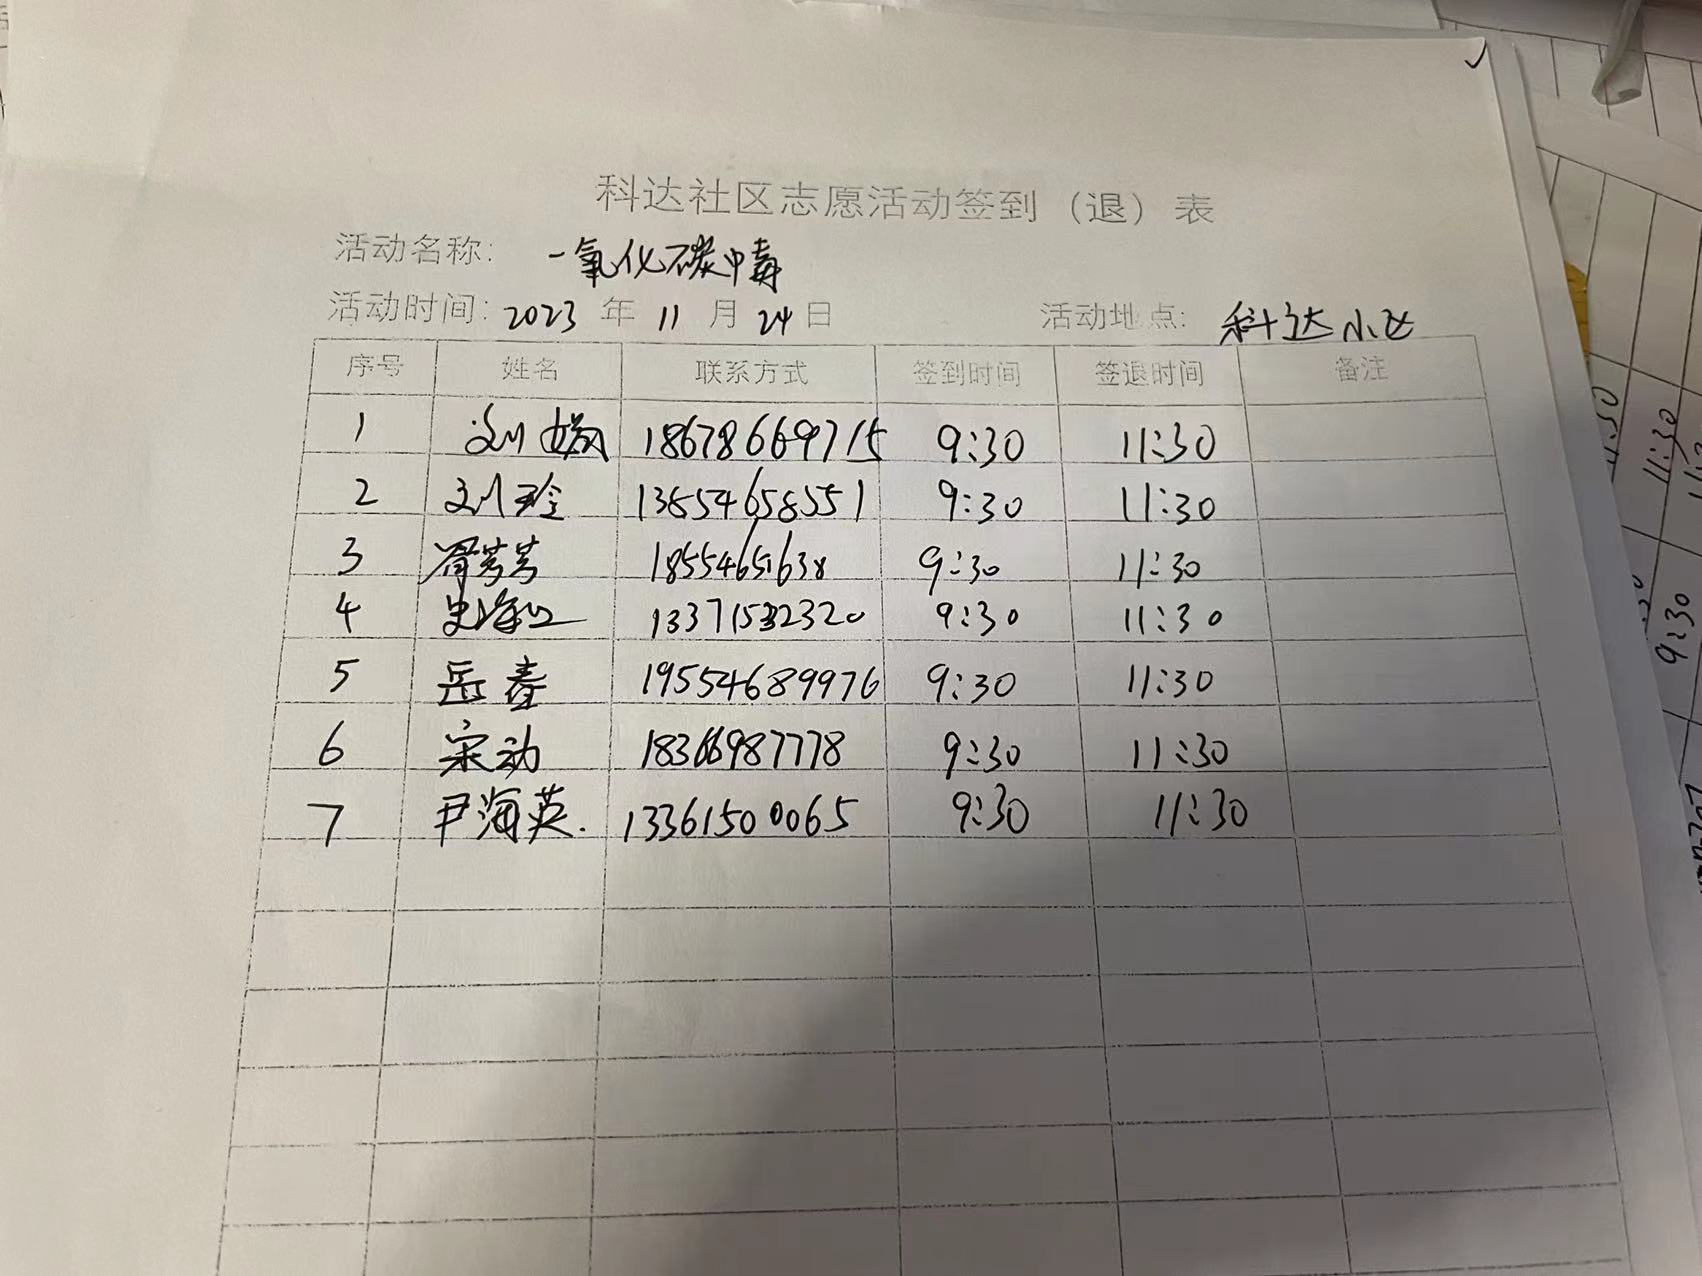 科达社区志愿活动签到（退）表
活动名称: 一氧化碳中毒
活动时间: 2023 年 11 月 24 日 活动地点: 科达小区
序号 姓名 联系方式 签到时间 签退时间 备注
1 刘娟 18678669715 9:30 11:30
2 刘玲 13854658551 9:30 11:30
3 芳芳 9:30 11:30
4 史海 9:30 11:30
5 岳春 19554689976 9:30 11:30
6 宋动 18366987778 9:30 11:30
7 尹海英. 13361500065 9:30 11:30
11:30
9:30